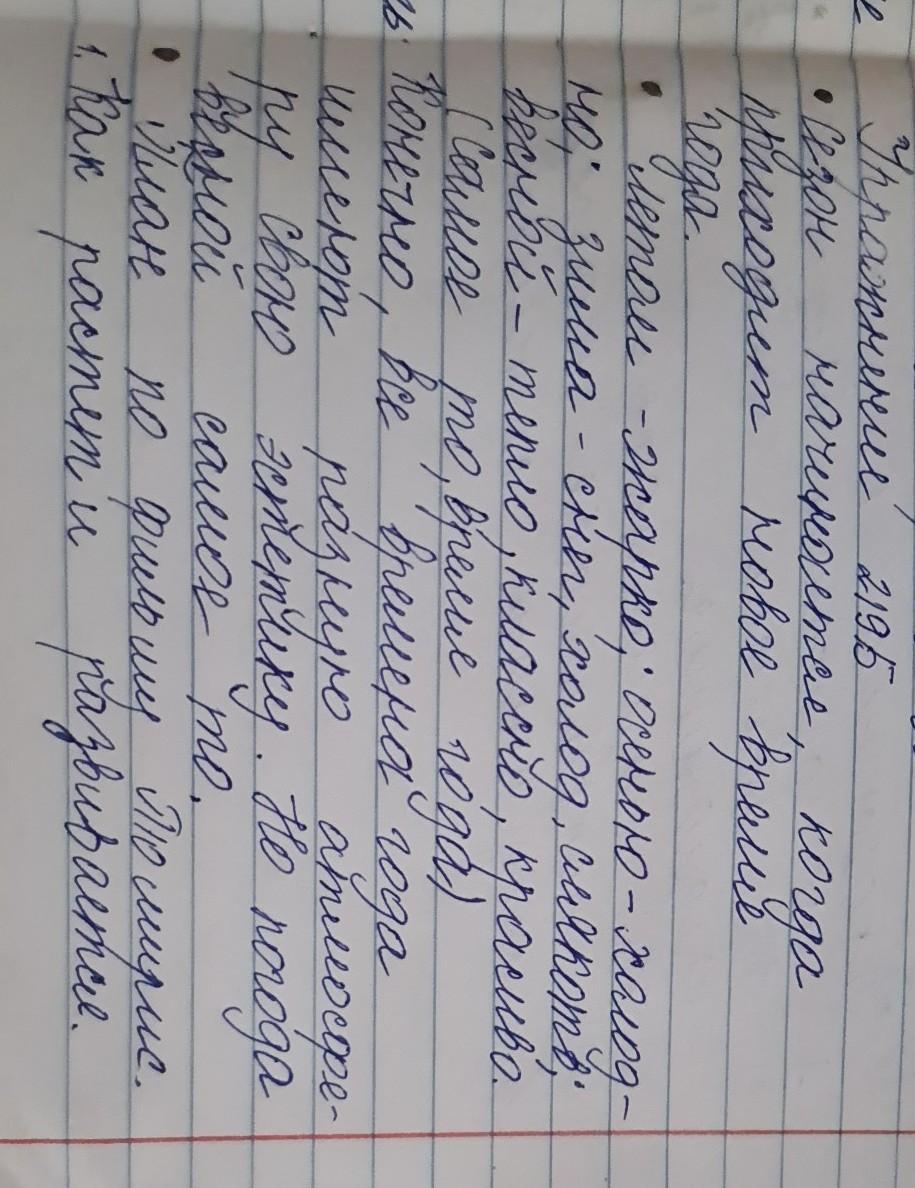 Упражнение 2195
• Сезон начинается, когда
приходит новое время
года.
• Летом - жарко; осенью - холод-
но; зима - снег, холод, слякоть;
весной - тепло, классно, красиво.
(Самое то, время года)
Конечно, все времена года
имеют разную атмосфе-
ру свою эстетику. Но погода
весной самое то.
• План по фильму
1. Как растет и развивается.